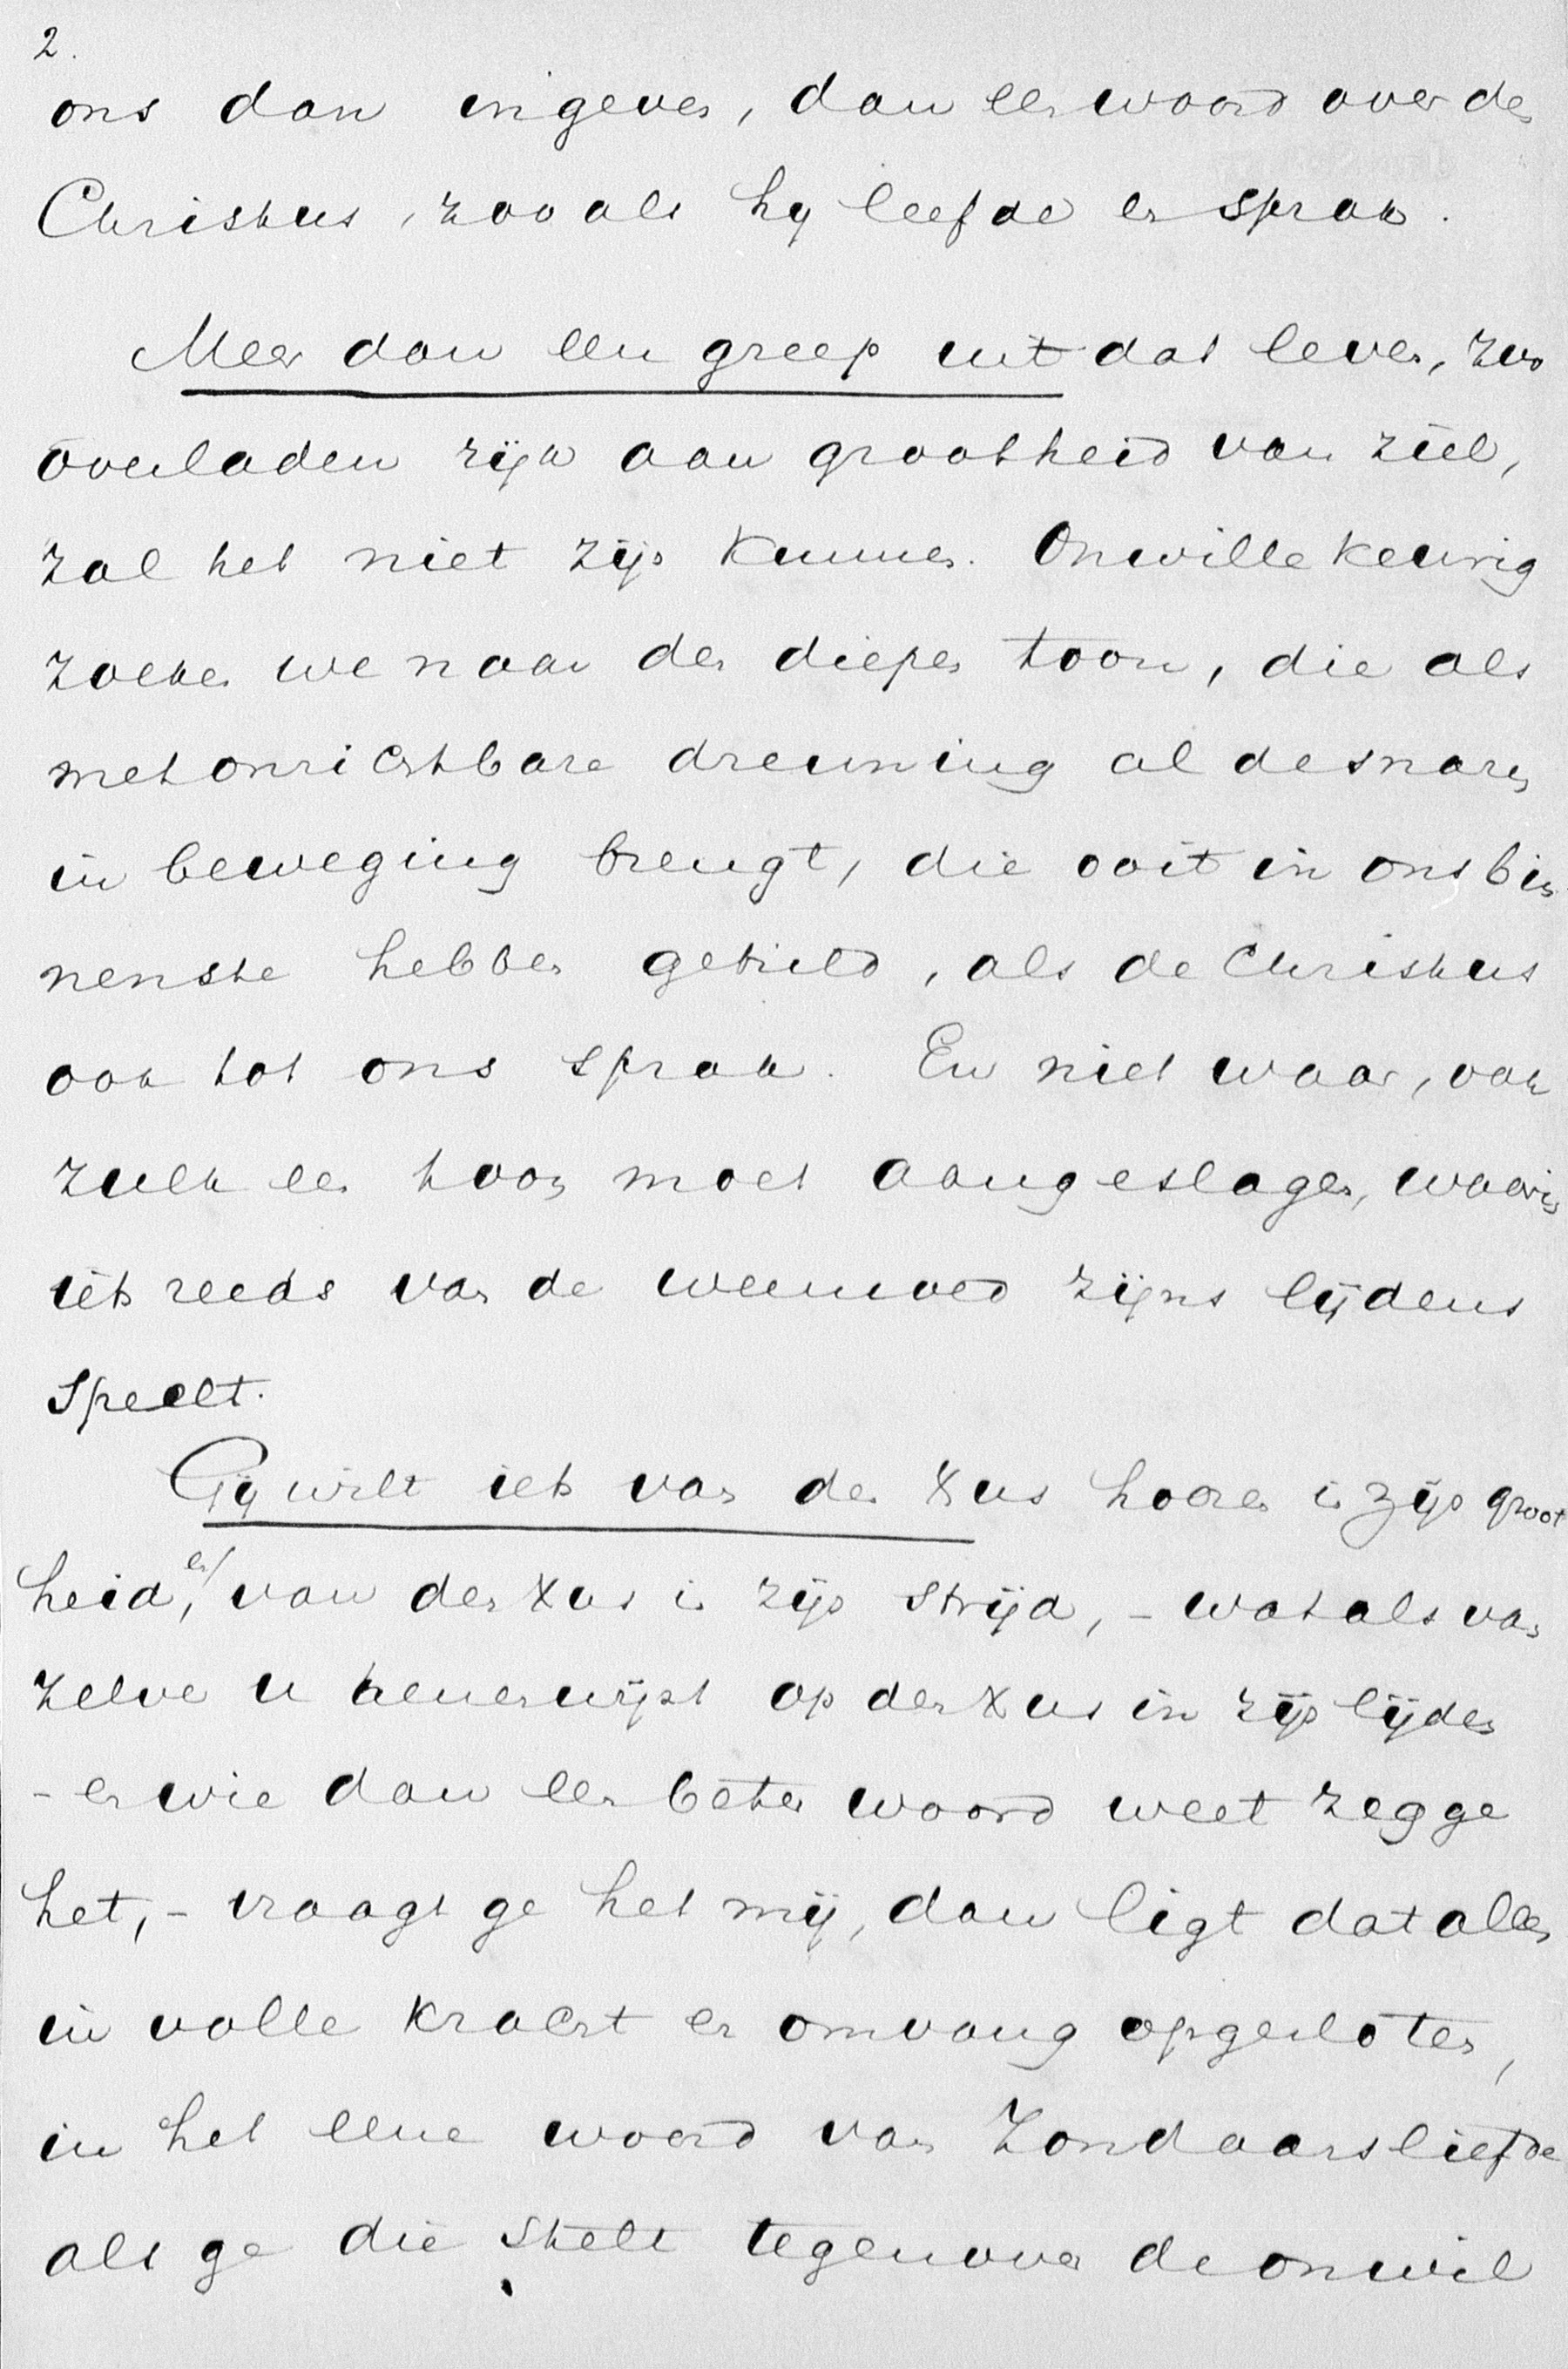 2.
ons dan ingeven, dan een woord over den
Christus, zooals hy leefde en sprak.
Meer dan een greep uit dat leven, zoo
overladen rijk aan grootheid van ziel,
zal het niet zijn kunnen. Onwillekeurig
zoeken we naar den diepen toon, die als
met onzichtbare dreuning al de snaren
in beweging brengt, die ooit in ons bin
nenste hebben getrild, als de Christus
ook tot ons sprak. En niet waar, ook
zulk een toon moet aangeslagen, waarin
iets reeds van de weemoed zijns lijdens
speelt.
Gij wilt iets van den Xus hooren in zijn groot
heid, en van den Xus in zijn strijd, - wat als van
zelve u henenwijst op den Xus in zijn lijden
- en wie dan een beter woord weet zegge
het, - vraagt ge het mij, dan ligt dat alles
in volle kracht en omvang opgesloten,
in het eene woord van Zondaarsliefde
als ge die stelt tegenover de onwil